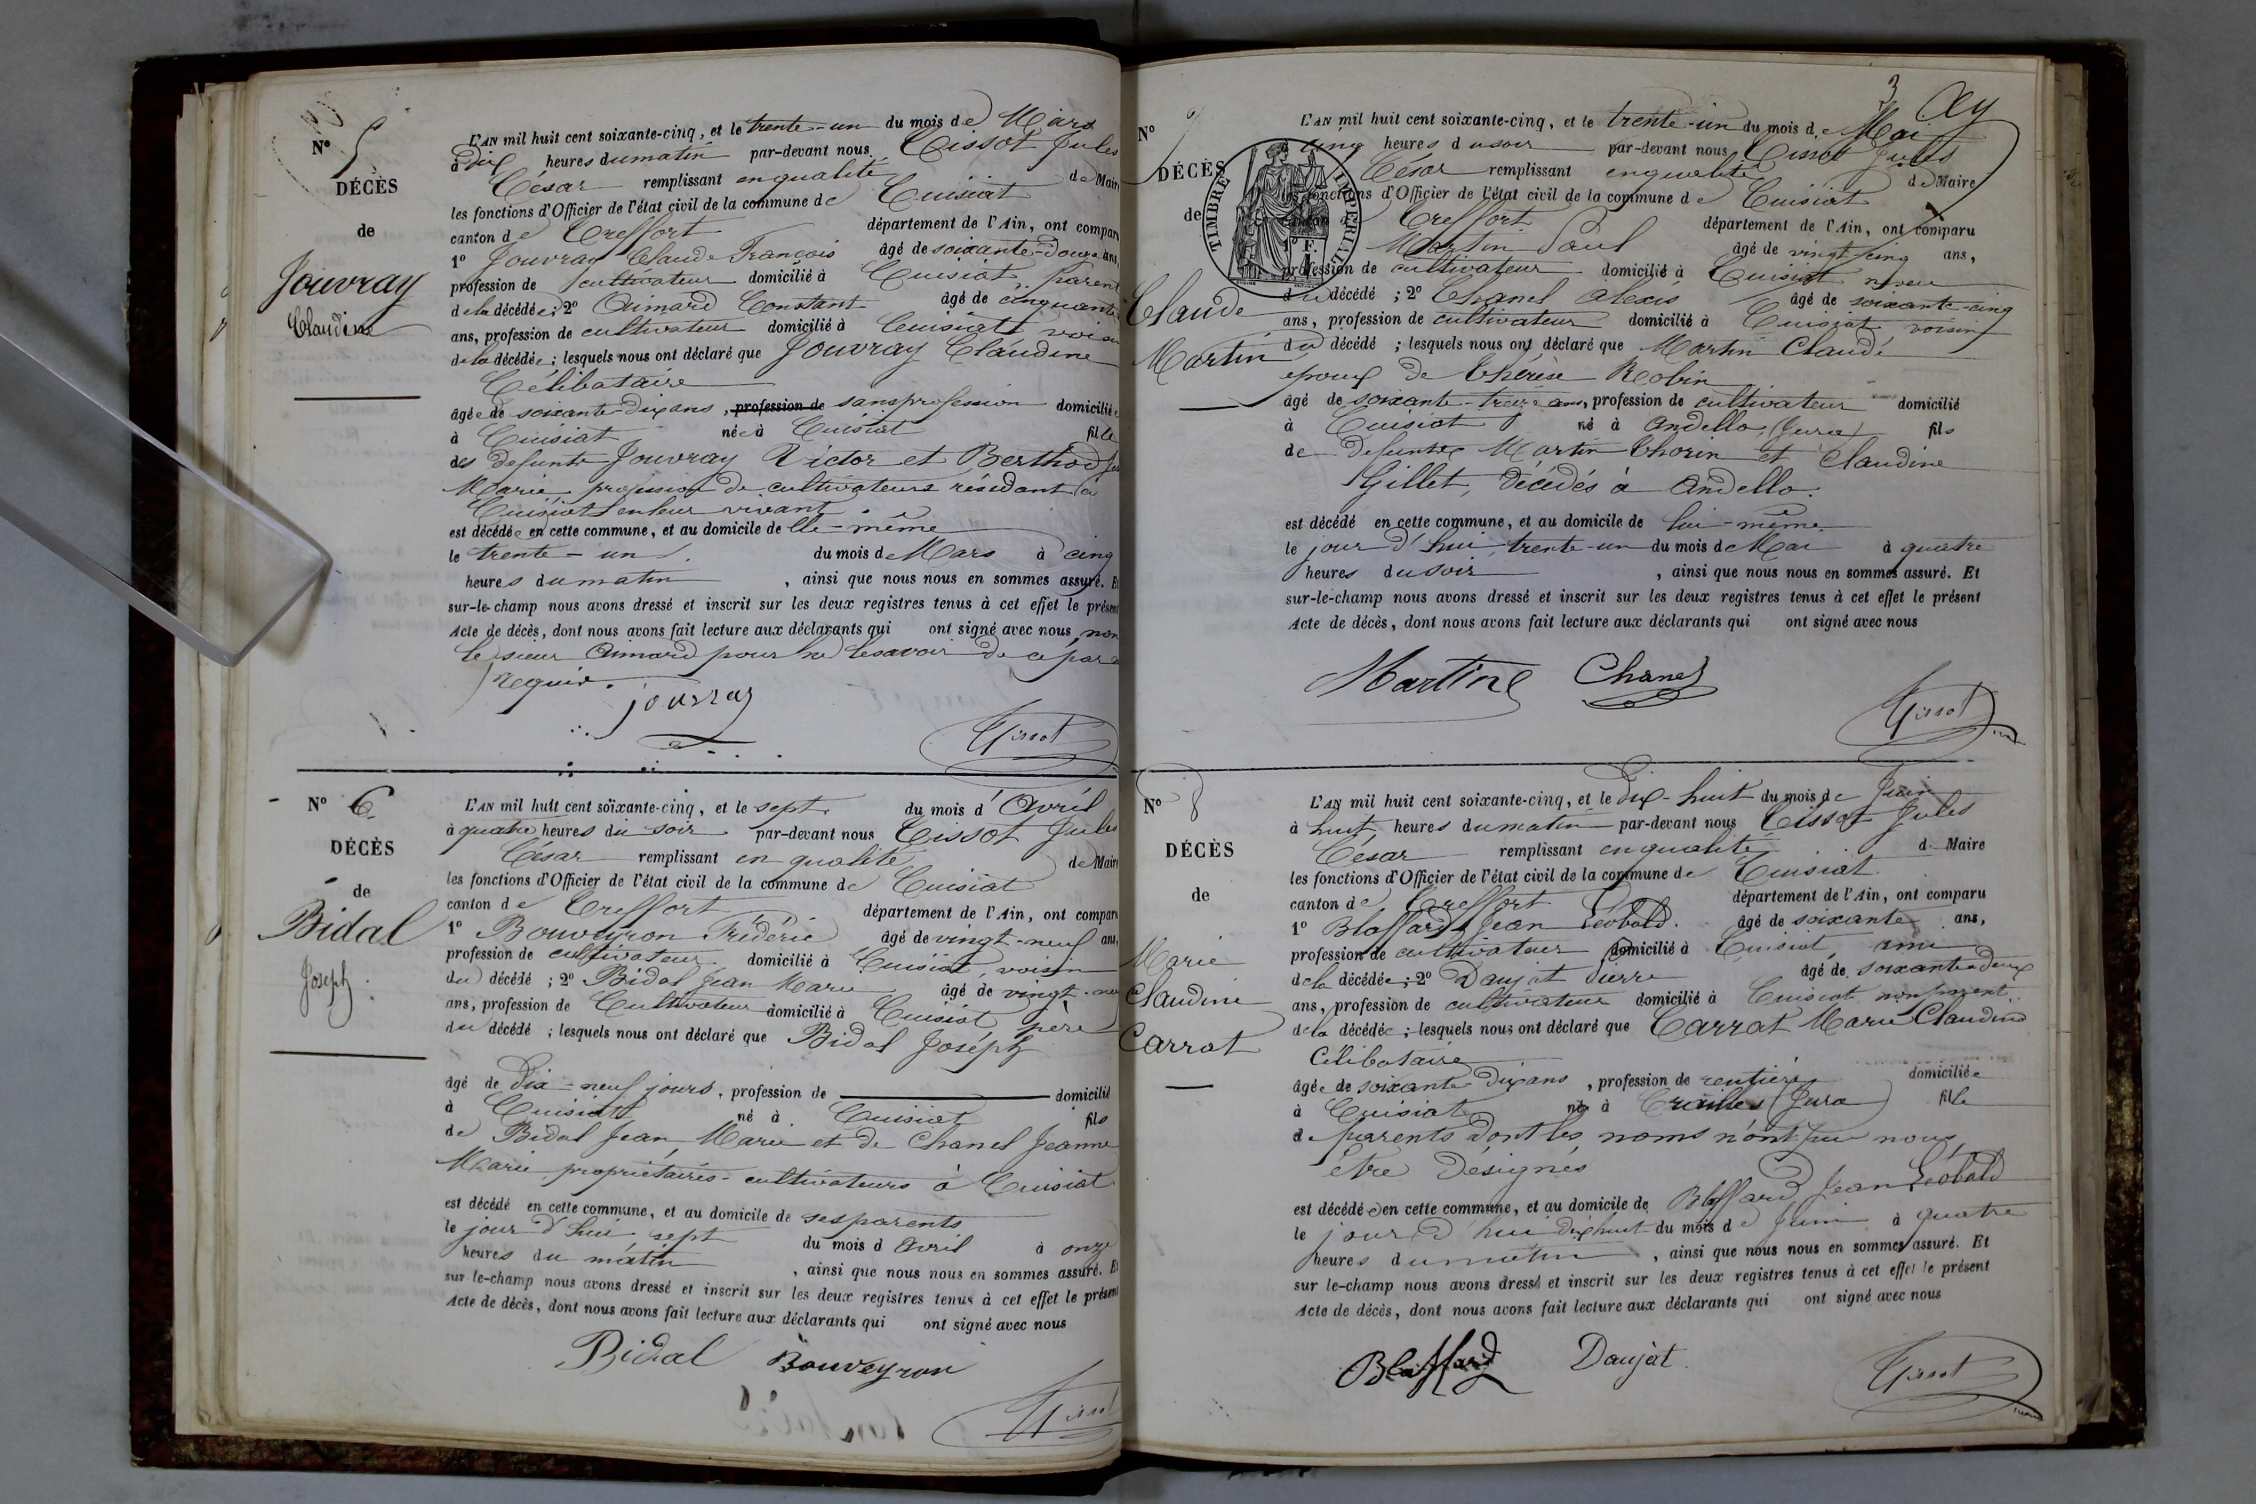 N° 5
DÉCÈS
de
Jouvray
Claudine
L'AN mil huit cent soixante-cinq, et le trente-un du mois de Mars
à Dix heures du matin par-devant nous Tissot Jules
César remplissant en qualité de Maire
les fonctions d'Officier de l'état civil de la commune de Cuisiat
canton de Treffort département de l'Ain, ont comparu
1° Jouvray Claude François âgé de soixante-douze ans,
profession de cultivateur domicilié à Cuisiat, parent
de la décédée; 2° Aimard Constant âgé de cinquante
ans, profession de cultivateur domicilié à Cuisiat voisin
de la décédée; lesquels nous ont déclaré que Jouvray Claudine
Célibataire
âgée de soixante-Dix ans, profession de sans profession domiciliée
à Cuisiat née à Cuisiat fille
des defunts Jouvray Victor et Berthod
Marie profession de cultivateurs résidant à
Cuisiat en leur vivant
est décédée en cette commune, et au domicile de elle-même
le trente-un du mois de Mars à cinq
heures du matin, ainsi que nous nous en sommes assuré. Et
sur-le-champ nous avons dressé et inscrit sur les deux registres tenus à cet effet le présent
Acte de décès, dont nous avons fait lecture aux déclarants qui ont signé avec nous, non
le sieur Aimard pour ne le savoir de ce par
requis.
jouvray
Tissot
N° 6
DÉCÈS
de
Bidal
Joseph
L'AN mil huit cent soixante-cinq, et le sept du mois d'Avril
à quatre heures du soir par-devant nous Tissot Jules
César remplissant en qualité de Maire
les fonctions d'Officier de l'état civil de la commune de Cuisiat
canton de Treffort département de l'Ain, ont comparu
1° Bouveyron Fréderic âgé de vingt-neuf ans,
profession de cultivateur domicilié à Cuisiat, voisin
du décédé; 2° Bidal Jean Marie âgé de vingt-neuf
ans, profession de Cultivateur domicilié à Cuisiat père
du décédé; lesquels nous ont déclaré que Bidal Joseph
âgé de Dix-neuf jours, profession de domicilié
à Cuisiat né à Cuisiat fils
de Bidal Jean Marie et de Chanel Jeanne
Marie propriétaires-cultivateurs à Cuisiat
est décédé en cette commune, et au domicile de ses parents
le jour d'hui sept du mois d Avril à onze
heures du matin, ainsi que nous nous en sommes assuré. Et
sur-le-champ nous avons dressé et inscrit sur les deux registres tenus à cet effet le présent
Acte de décès, dont nous avons fait lecture aux déclarants qui ont signé avec nous
Bidal Bouveyron
Tissot
3
N° 7
DÉCÈS
de
Claude
Martin
TIMBRE IMPERIAL
1 F.
L'AN mil huit cent soixante-cinq, et le trente-un du mois de Mai
cinq heures du soir par-devant nous Tissot Jules
César remplissant en qualité de Maire
les fonctions d'Officier de l'état civil de la commune de Cuisiat
canton de Treffort département de l'Ain, ont comparu
Martin Paul âgé de vingt cinq ans,
profession de cultivateur domicilié à Cuisiat neveu
du décédé; 2° Chanel Alexis âgé de soixante-cinq
ans, profession de cultivateur domicilié à Cuisiat voisin
du décédé; lesquels nous ont déclaré que Martin Claude
epoux de Thérèse Robin
âgé de soixante-treize ans, profession de cultivateur domicilié
à Cuisiat né à Andello (Jura) fils
de defunts Martin Thorin et Claudine
Gillet, décédés à Andello.
est décédé en cette commune, et au domicile de lui-même
le jour d'hui trente-un du mois de Mai à quatre
heures du soir, ainsi que nous nous en sommes assuré. Et
sur-le-champ nous avons dressé et inscrit sur les deux registres tenus à cet effet le présent
Acte de décès, dont nous avons fait lecture aux déclarants qui ont signé avec nous
Martin Chanel
Tissot
N° 8
DÉCÈS
de
Marie
Claudine
Carrat
L'AN mil huit cent soixante-cinq, et le Dix-huit du mois de Juin
à huit heures du matin par-devant nous Tissot Jules
César remplissant en qualité de Maire
les fonctions d'Officier de l'état civil de la commune de Cuisiat
canton de Treffort département de l'Ain, ont comparu
1° Blaffard Jean Léobald âgé de soixante ans,
profession de cultivateur domicilié à Cuisiat ami
de la décédée; 2° Daujat Pierre âgé de soixante-deux
ans, profession de cultivateur domicilié à Cuisiat non parent
de la décédée; lesquels nous ont déclaré que Carrat Marie Claudine
Célibataire
âgée de soixante Dix ans, profession de rentière domiciliée
à Cuisiat née à (Jura) fille
de parents dont les noms n'ont pu nous
être désignés
est décédée en cette commune, et au domicile de Blaffard Jean Léobald
le jour d'hui dixhuit du mois de Juin à quatre
heures du matin, ainsi que nous nous en sommes assuré. Et
sur le-champ nous avons dressé et inscrit sur les deux registres tenus à cet effet le présent
Acte de décès, dont nous avons fait lecture aux déclarants qui ont signé avec nous
Blaffard Daujat
Tissot